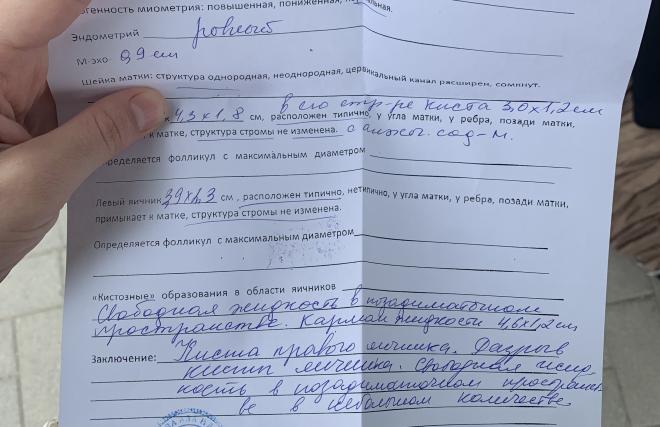 огенность миометрия: повышенная, пониженная, нормальная.
Эндометрий ровный
М-эхо 0,9 см
Шейка матки: структура однородная, неоднородная, цервикальный канал расширен, сомкнут.
в его стр-ре киста 3,0х1,2см
4,3х1,8 см, расположен типично, у угла матки, у ребра, позади матки,
к матке, структура стромы не изменена. с анэхог. сод-м.
пределяется фолликул с максимальным диаметром
Левый яичник 39х2,3 см, расположен типично, нетипично, у угла матки, у ребра, позади матки,
примыкает к матке, структура стромы не изменена.
Определяется фолликул с максимальным диаметром
«Кистозные» образования в области яичников
Свободная жидкость в позадиматочном
пространстве. Карман жидкости 4,6х1,2см
Заключение: Киста правого яичника. Разрыв
кисты яичника. Свободная жид-
кость в позадиматочном пространст-
ве в небольшом количестве.